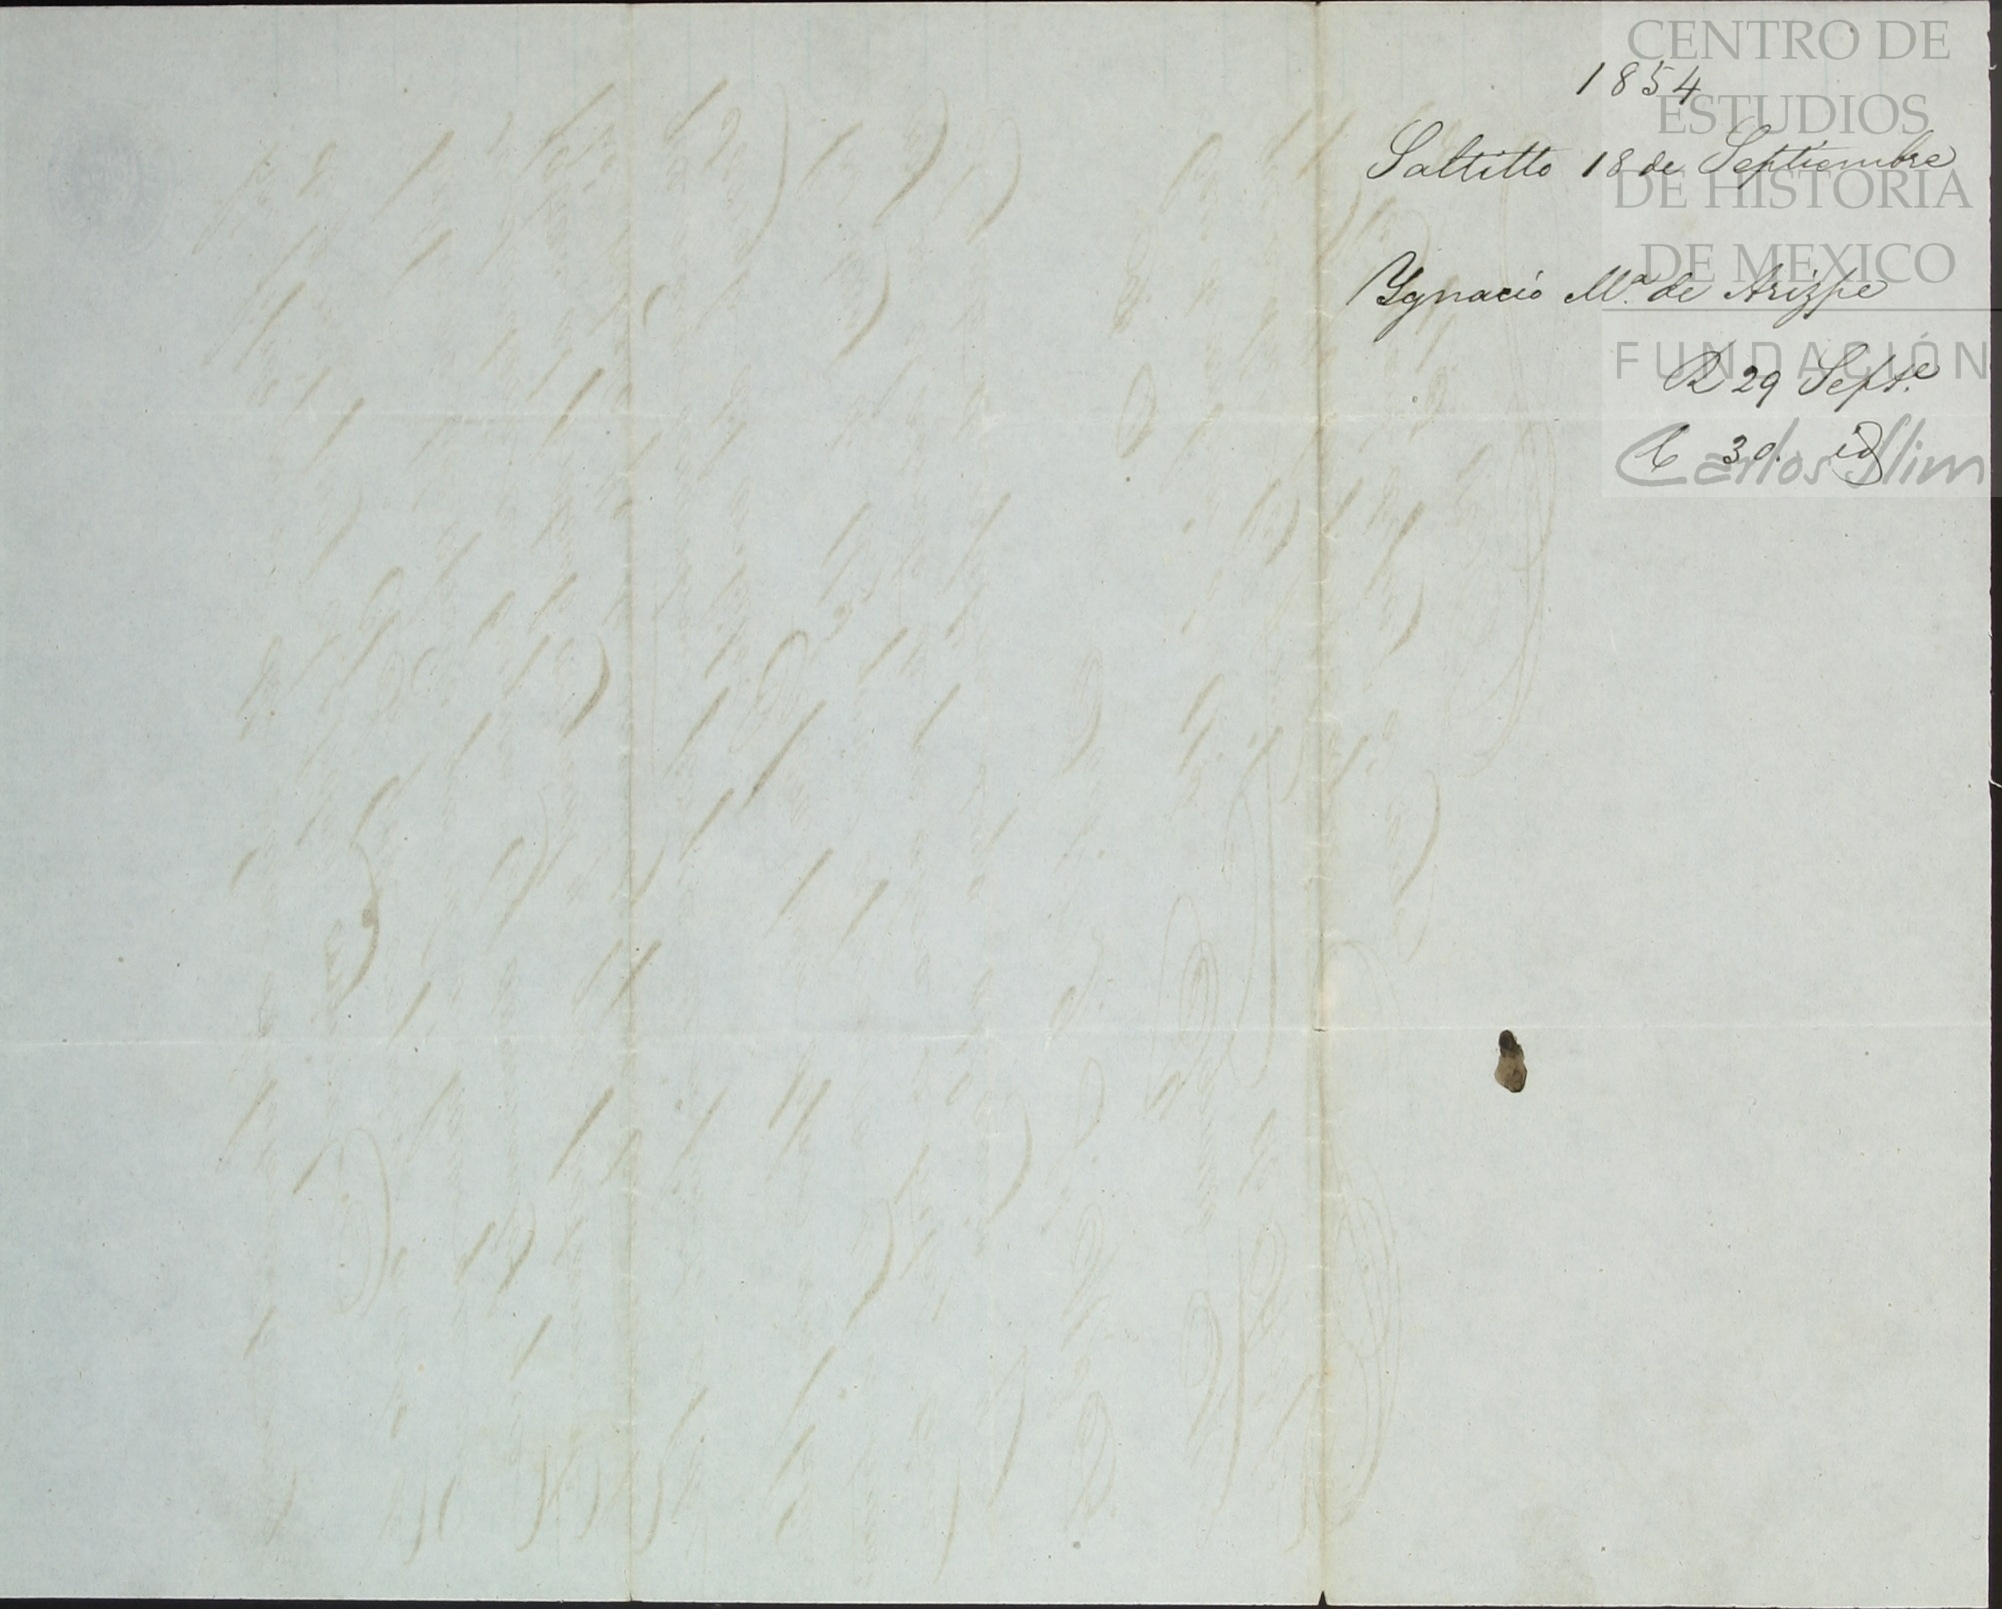 1854
Saltillo 18 de Septiembre
Ygnacio M.ª de Arizpe
R 29 Sept.e
C 30. id
CENTRO DE
ESTUDIOS
DE HISTORIA
DE MEXICO
FUNDACIÓN
Carlos Slim